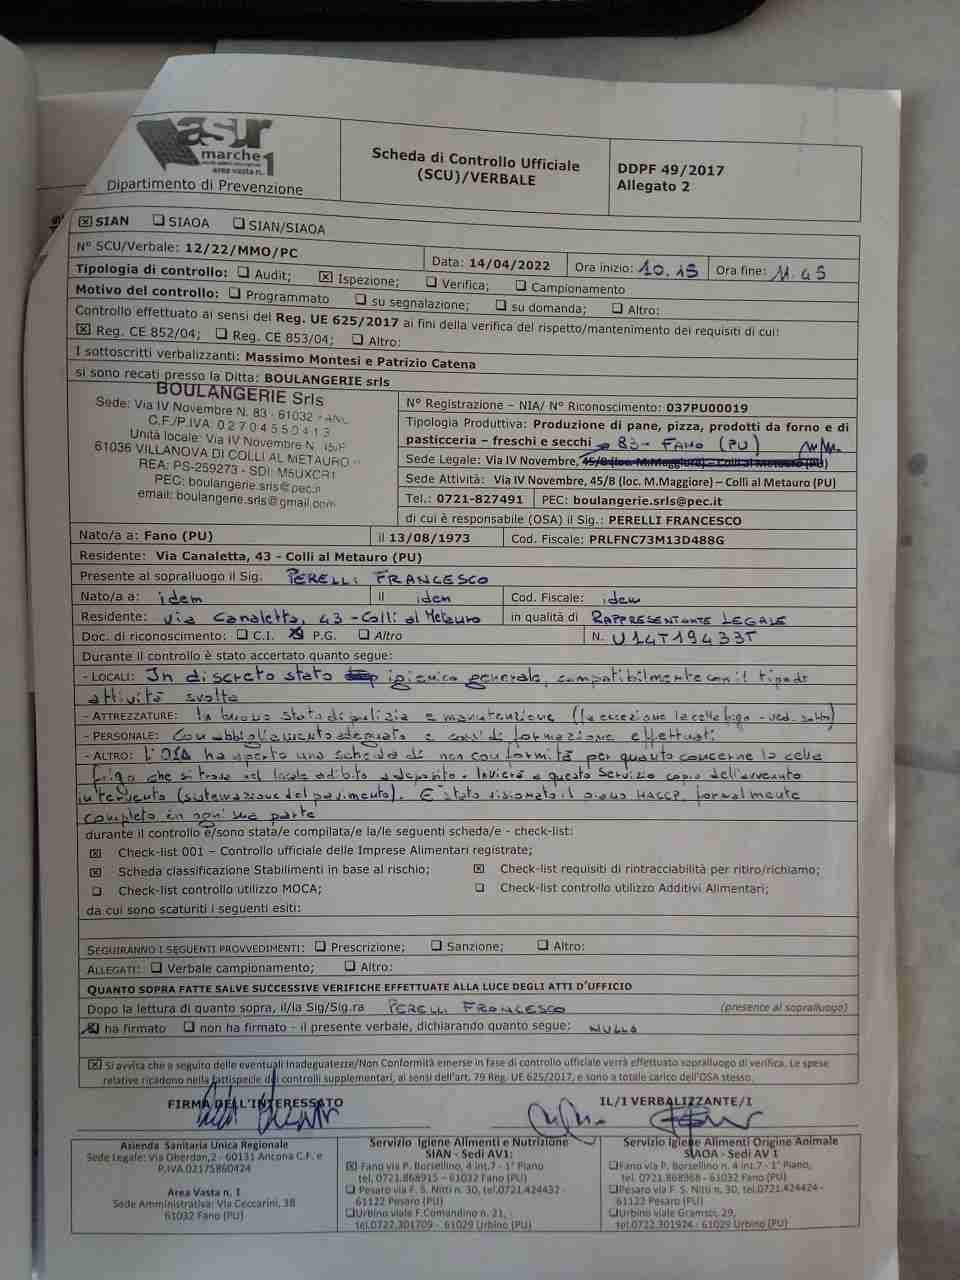 asur
marche 1
area vasta n. 1
Dipartimento di Prevenzione
Scheda di Controllo Ufficiale
(SCU)/VERBALE
DDPF 49/2017
Allegato 2
☒ SIAN ☐ SIAOA ☐ SIAN/SIAOA
N° SCU/Verbale: 12/22/MMO/PC Data: 14/04/2022 Ora inizio: 10.15 Ora fine: 11.45
Tipologia di controllo: ☐ Audit; ☒ Ispezione; ☐ Verifica; ☐ Campionamento
Motivo del controllo: ☐ Programmato ☐ su segnalazione; ☐ su domanda; ☐ Altro:
Controllo effettuato ai sensi del Reg. UE 625/2017 ai fini della verifica del rispetto/mantenimento dei requisiti di cui:
☒ Reg. CE 852/04; ☐ Reg. CE 853/04; ☐ Altro:
I sottoscritti verbalizzanti: Massimo Montesi e Patrizio Catena
si sono recati presso la Ditta: BOULANGERIE srls
BOULANGERIE Srls
Sede: Via IV Novembre N. 83 - 61032
C.F./P.IVA 02704550413
Unità locale: Via IV Novembre N.
61036 VILLANOVA DI COLLI AL METAURO
REA: PS-259273 - SDI: M5UXCR1
PEC: boulangerie.srls@pec.it
email: boulangerie.srls@gmail.com
N° Registrazione – NIA/ N° Riconoscimento: 037PU00019
Tipologia Produttiva: Produzione di pane, pizza, prodotti da forno e di
pasticceria – freschi e secchi 83 - FANO (PU)
Sede Legale: Via IV Novembre, 45/8 (loc. M.Maggiore) – Colli al Metauro (PU)
Sede Attività: Via IV Novembre, 45/8 (loc. M.Maggiore) – Colli al Metauro (PU)
Tel.: 0721-827491 PEC: boulangerie.srls@pec.it
di cui è responsabile (OSA) il Sig.: PERELLI FRANCESCO
Nato/a a: Fano (PU) il 13/08/1973 Cod. Fiscale: PRLFNC73M13D488G
Residente: Via Canaletta, 43 - Colli al Metauro (PU)
Presente al sopralluogo il Sig. PERELLI FRANCESCO
Nato/a a: idem il idem Cod. Fiscale: idem
Residente: via Canaletta, 43 - Colli al Metauro in qualità di RAPPRESENTANTE LEGALE
Doc. di riconoscimento: ☐ C.I. ☒ P.G. ☐ Altro N. U14T19433T
Durante il controllo è stato accertato quanto segue:
- LOCALI: In discreto stato igienico generale, compatibilmente con il tipo di
attività svolta
- ATTREZZATURE: In buono stato di pulizia e manutenzione (fa eccezione la cella frigo - ved. sotto)
- PERSONALE: Con abbigliamento adeguato e corsi di formazione effettuati
- ALTRO: L'OSA ha aperto una scheda di non conformità per quanto concerne la cella
frigo che si trova nel locale adibito a deposito. Invierà a questo Servizio copia dell'avvenuto
intervento (sistemazione del pavimento). E' stato visionato il piano HACCP, formalmente
completo in ogni sua parte
durante il controllo è/sono stata/e compilata/e la/le seguenti scheda/e - check-list:
☒ Check-list 001 – Controllo ufficiale delle Imprese Alimentari registrate;
☒ Scheda classificazione Stabilimenti in base al rischio; ☒ Check-list requisiti di rintracciabilità per ritiro/richiamo;
☐ Check-list controllo utilizzo MOCA; ☐ Check-list controllo utilizzo Additivi Alimentari;
da cui sono scaturiti i seguenti esiti:
SEGUIRANNO I SEGUENTI PROVVEDIMENTI: ☐ Prescrizione; ☐ Sanzione; ☐ Altro:
ALLEGATI: ☐ Verbale campionamento; ☐ Altro:
QUANTO SOPRA FATTE SALVE SUCCESSIVE VERIFICHE EFFETTUATE ALLA LUCE DEGLI ATTI D'UFFICIO
Dopo la lettura di quanto sopra, il/la Sig/Sig.ra PERELLI FRANCESCO (presente al sopralluogo)
☒ ha firmato ☐ non ha firmato - il presente verbale, dichiarando quanto segue: NULLA
☒ Si avvisa che a seguito delle eventuali Inadeguatezze/Non Conformità emerse in fase di controllo ufficiale verrà effettuato sopralluogo di verifica. Le spese
relative ricadono nella fattispecie dei controlli supplementari, ai sensi dell'art. 79 Reg. UE 625/2017, e sono a totale carico dell'OSA stesso.
FIRMA DELL'INTERESSATO IL/I VERBALIZZANTE/I
Azienda Sanitaria Unica Regionale
Sede Legale: Via Oberdan,2 - 60131 Ancona C.F. e
P.IVA 02175860424
Area Vasta n. 1
Sede Amministrativa: Via Ceccarini, 38
61032 Fano (PU)
Servizio Igiene Alimenti e Nutrizione
SIAN - Sedi AV1:
☒ Fano via P. Borsellino, 4 int.7 - 1° Piano
tel. 0721.868915 – 61032 Fano (PU)
☐ Pesaro via F. S. Nitti n. 30, tel.0721.424432 -
61122 Pesaro (PU)
☐Urbino viale F.Comandino n. 21, -
tel.0722.301709 - 61029 Urbino (PU)
Servizio Igiene Alimenti Origine Animale
SIAOA - Sedi AV 1
☐Fano via P. Borsellino n. 4 int.7 - 1° Piano,
tel. 0721.868968 - 61032 Fano (PU)
☐Pesaro via F. S. Nitti n. 30, tel.0721.424424 -
61122 Pesaro (PU)
☐Urbino viale Gramsci, 29,
tel.0722.301924 - 61029 Urbino (PU)